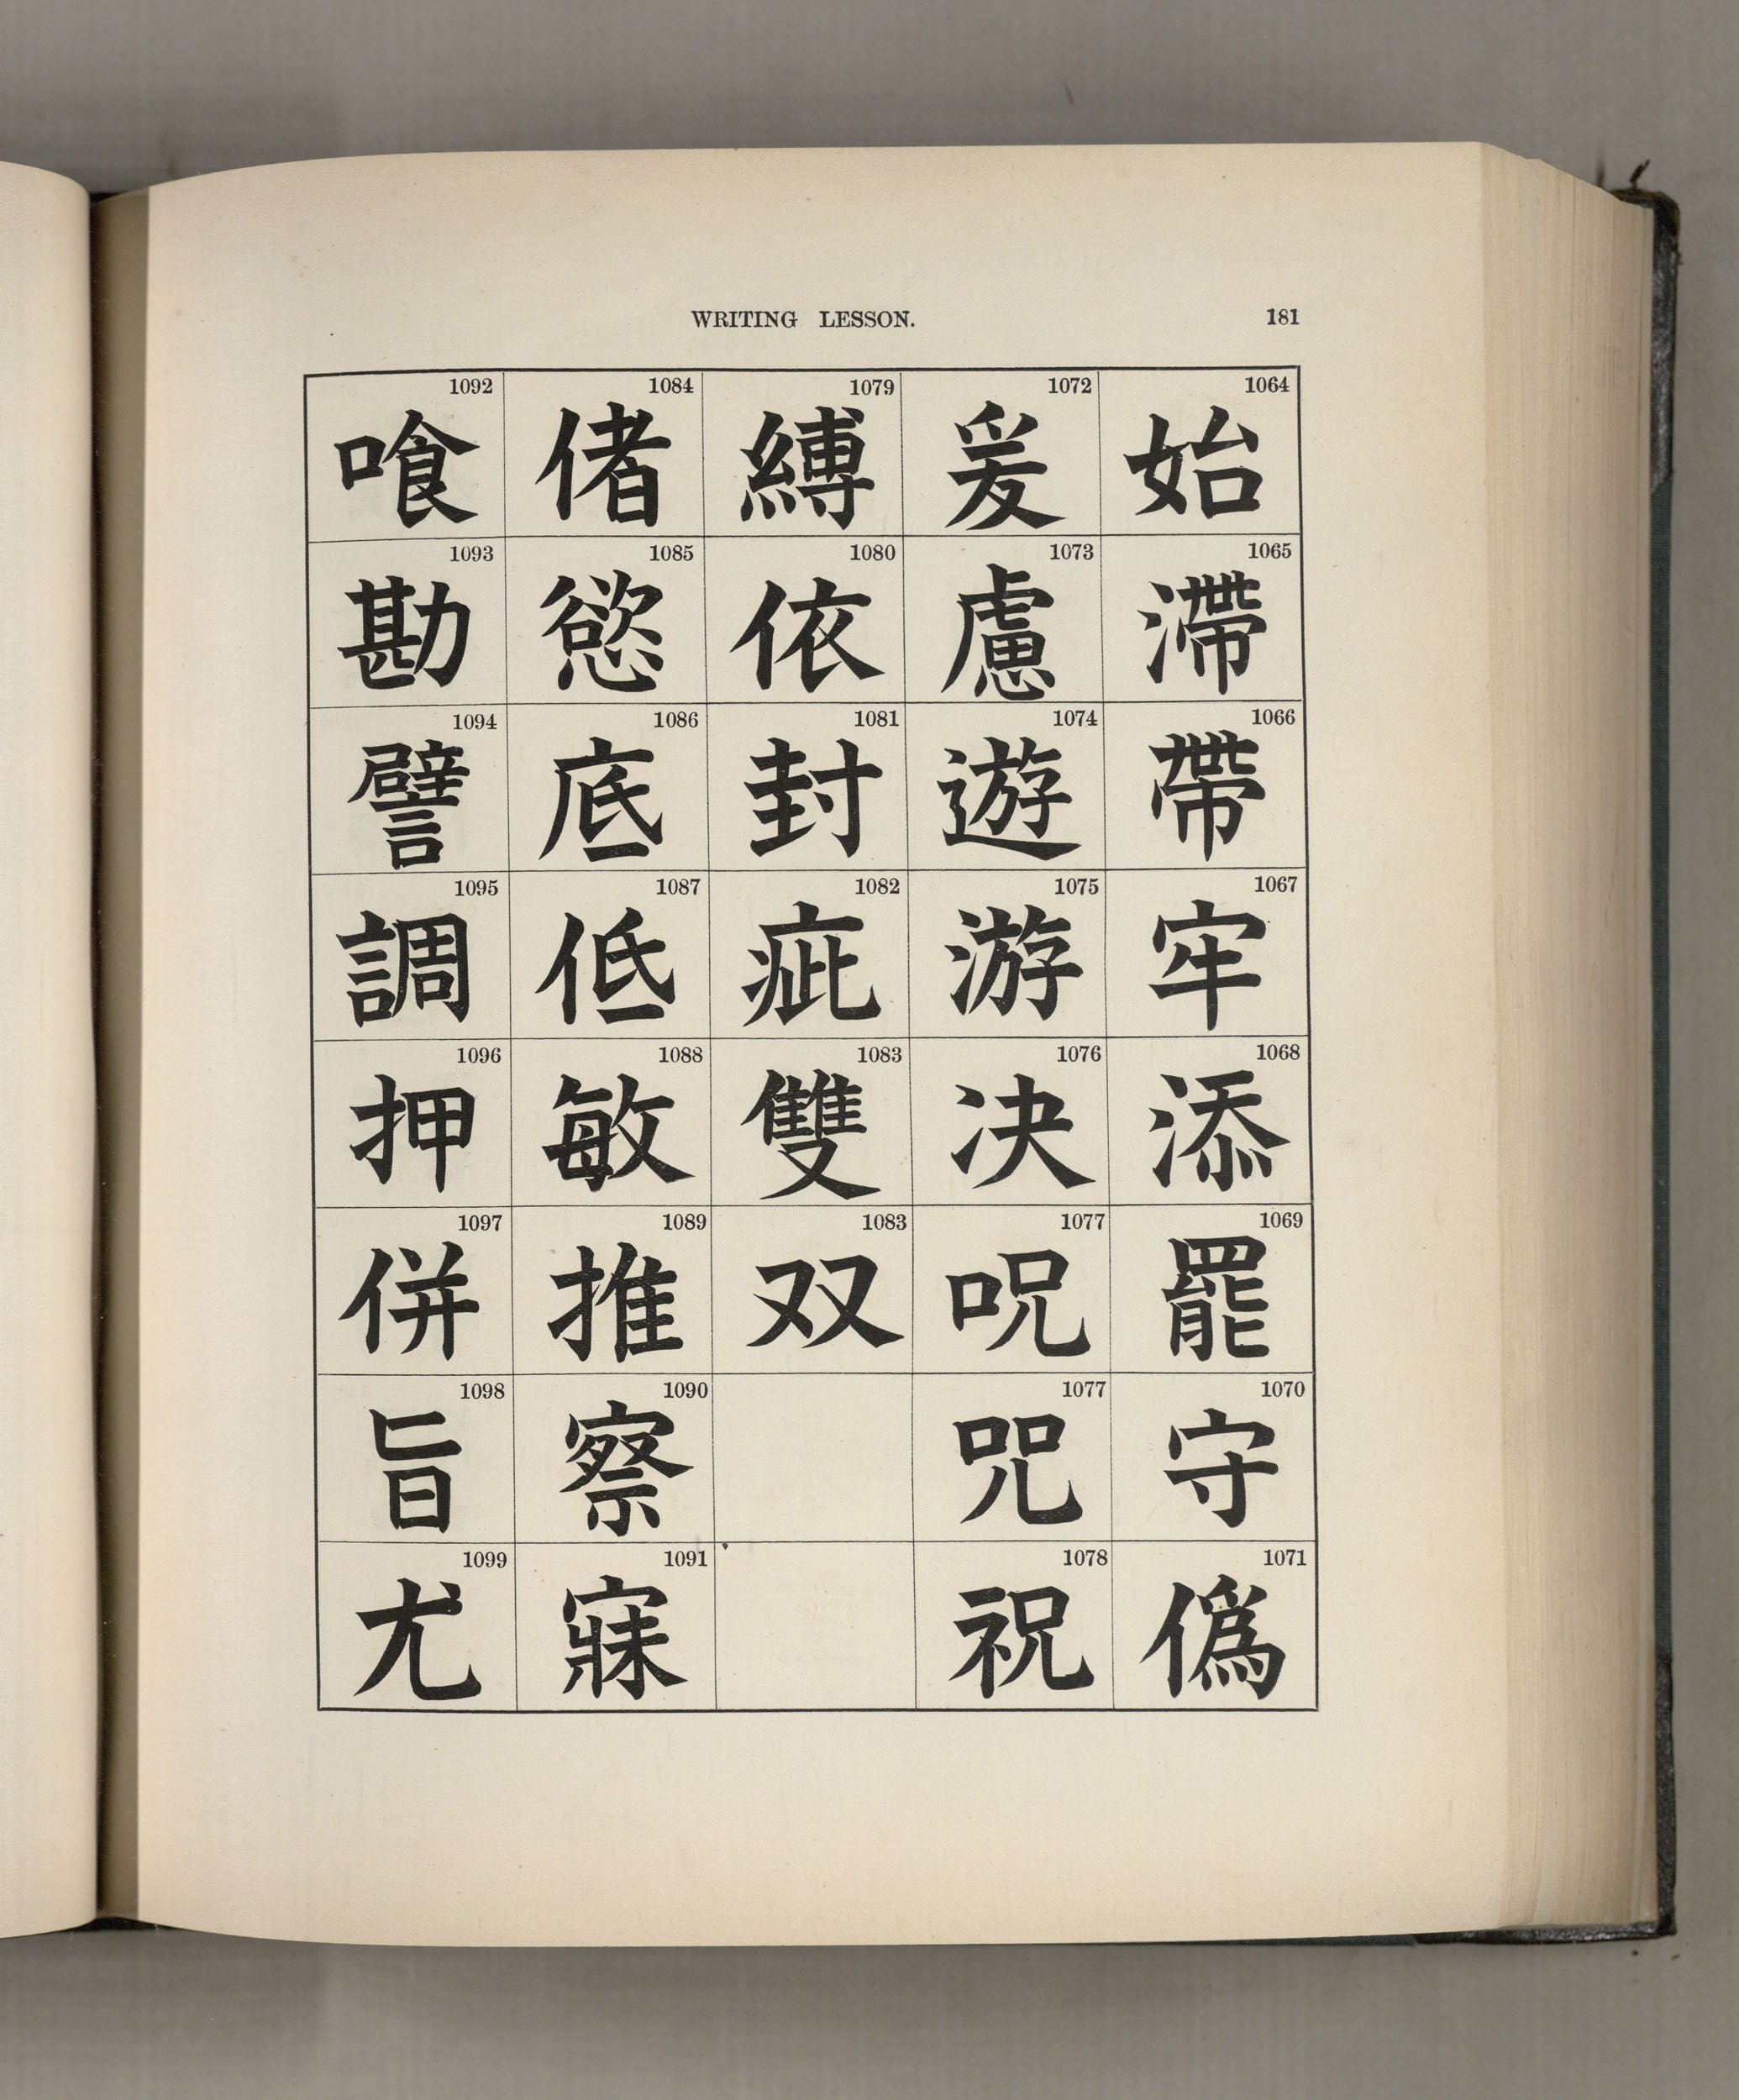 WRITING LESSON. 181
1064 始
1065 滯
1066 帶
1067 牢
1068 添
1069 罷
1070 守
1071 僞
1072 爰
1073 慮
1074 遊
1075 游
1076 决
1077 呪
1077 咒
1078 祝
1079 縛
1080 依
1081 封
1082 疵
1083 雙
1083 双
1084 偖
1085 慾
1086 底
1087 低
1088 敏
1089 推
1090 察
1091 寐
1092 喰
1093 勘
1094 譬
1095 調
1096 押
1097 併
1098 旨
1099 尤